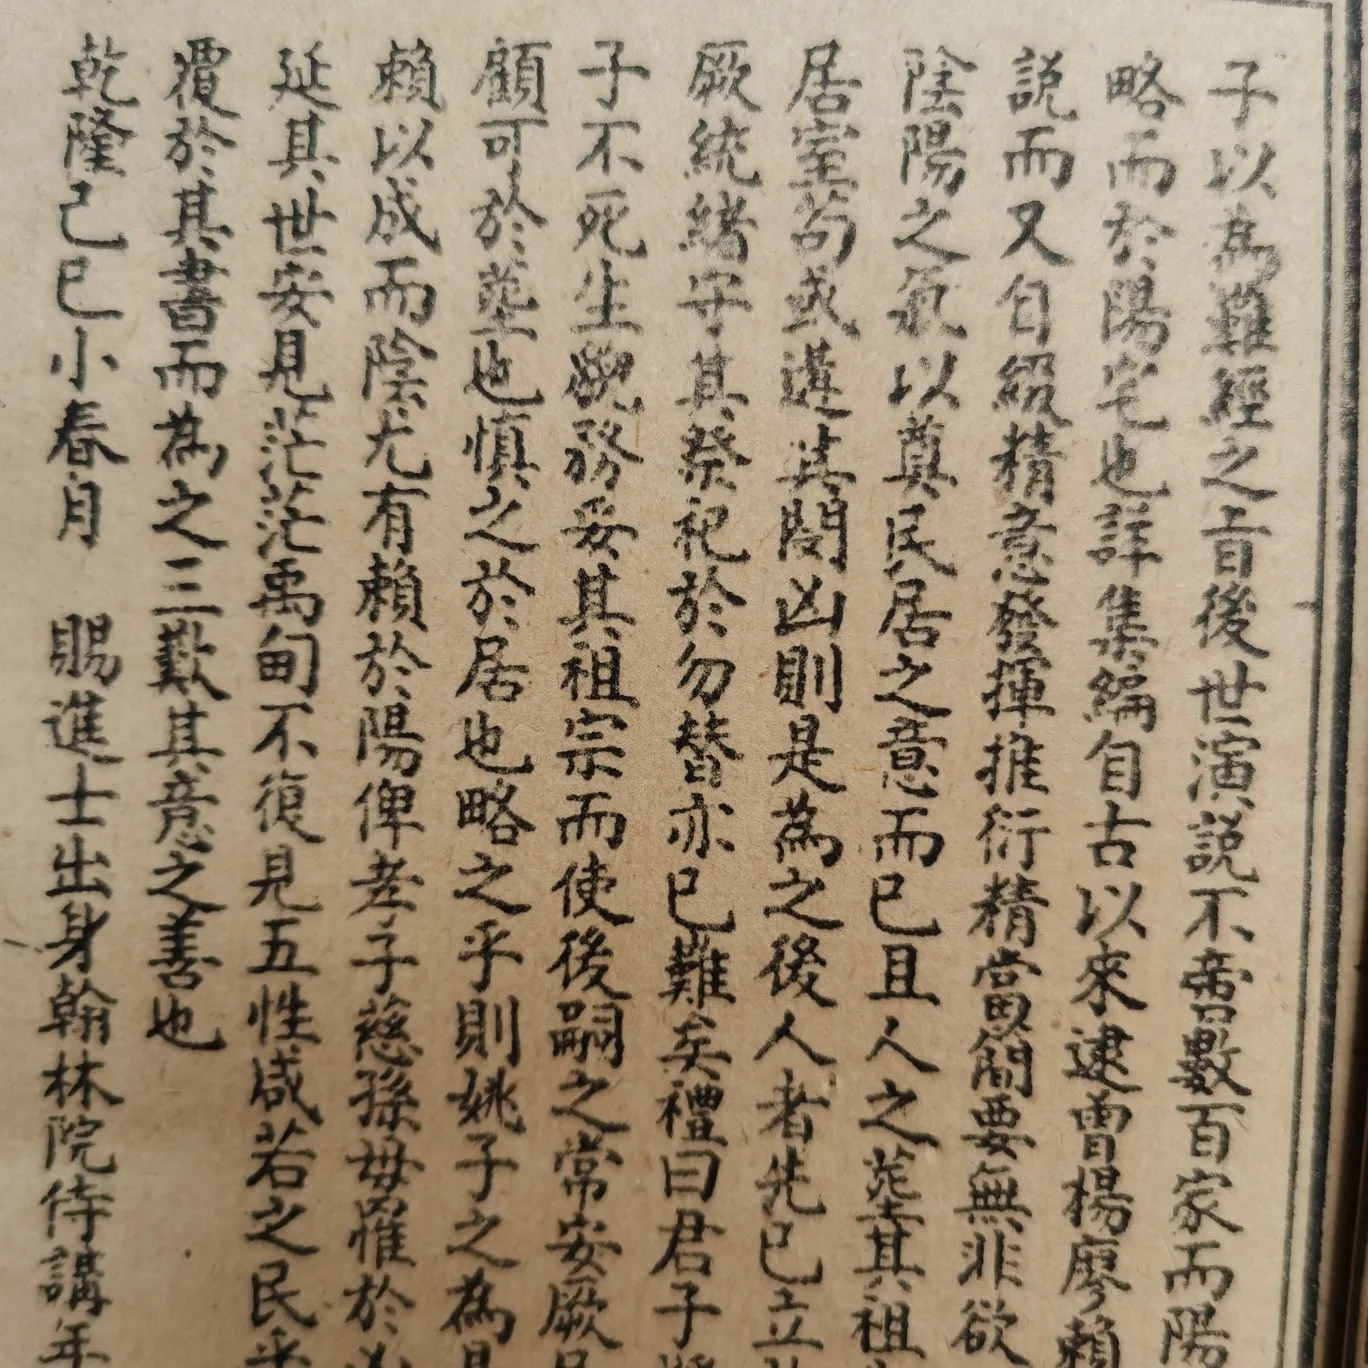 子以為難經之旨後世演說不啻數百家而陽
略而於陽宅也詳集編自古以來逮曾楊廖賴
說而又自綴精意發揮推衍精當簡要無非欲
陰陽之氣以奠民居之意而已且人之塟其祖
居室苟或遘其閔凶則是為之後人者先已立
厥統緒守其祭祀於勿替亦已難矣禮曰君子
子不死生覬務妥其祖宗而使後嗣之常安厥
顧可於塟也慎之於居也略之乎則姚子之為
賴以成而陰尤有賴於陽俾孝子慈孫毋罹於凶
延其世安見茫茫禹甸不復見五性咸若之民乎
覆於其書而為之三歎其意之善也
乾隆己巳小春月 賜進士出身翰林院侍講年